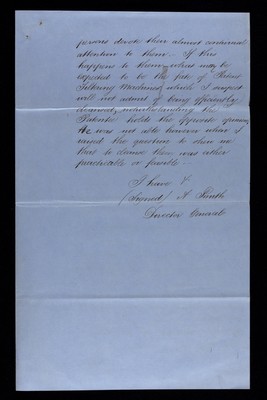 persons devote their almost continual
attention to them. If this
happens to them, what may be
expected to be the fate of Patent
Filtering Machines, which I suspect
will not admit of being efficiently
cleansed, notwithstanding the
Patentee holds the opposite opinion,
He was not able however when I
raised the question to show me
that to cleanse them was either
practicable or possible —
I have &
(signed) A Smith
Director General